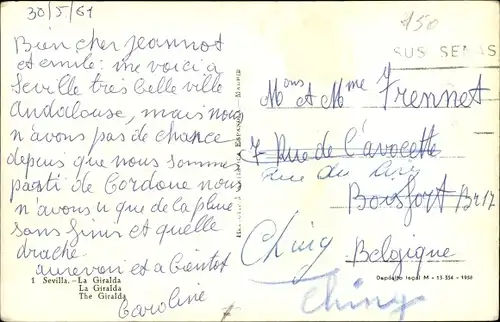 30/5/61
Bien cher Jeannot
et emile: me voici a
Seville tres belle ville
Andalouse, mais nous
n'avons pas de chance
depuis que nous somme
parti de Cordoue nous
n'avons u que de la pluie
sans finir et quelle
drache
aurevoir et a bientot
Caroline
1 Sevilla.-La Giralda
La Giralda
The Giralda
150
Mons et Mme Frennet
7 Rue de l'avocette
Rue du
Boisfort Br 17
Belgique
Chiny
Chiny
Depósito legal M - 13.556 - 1958